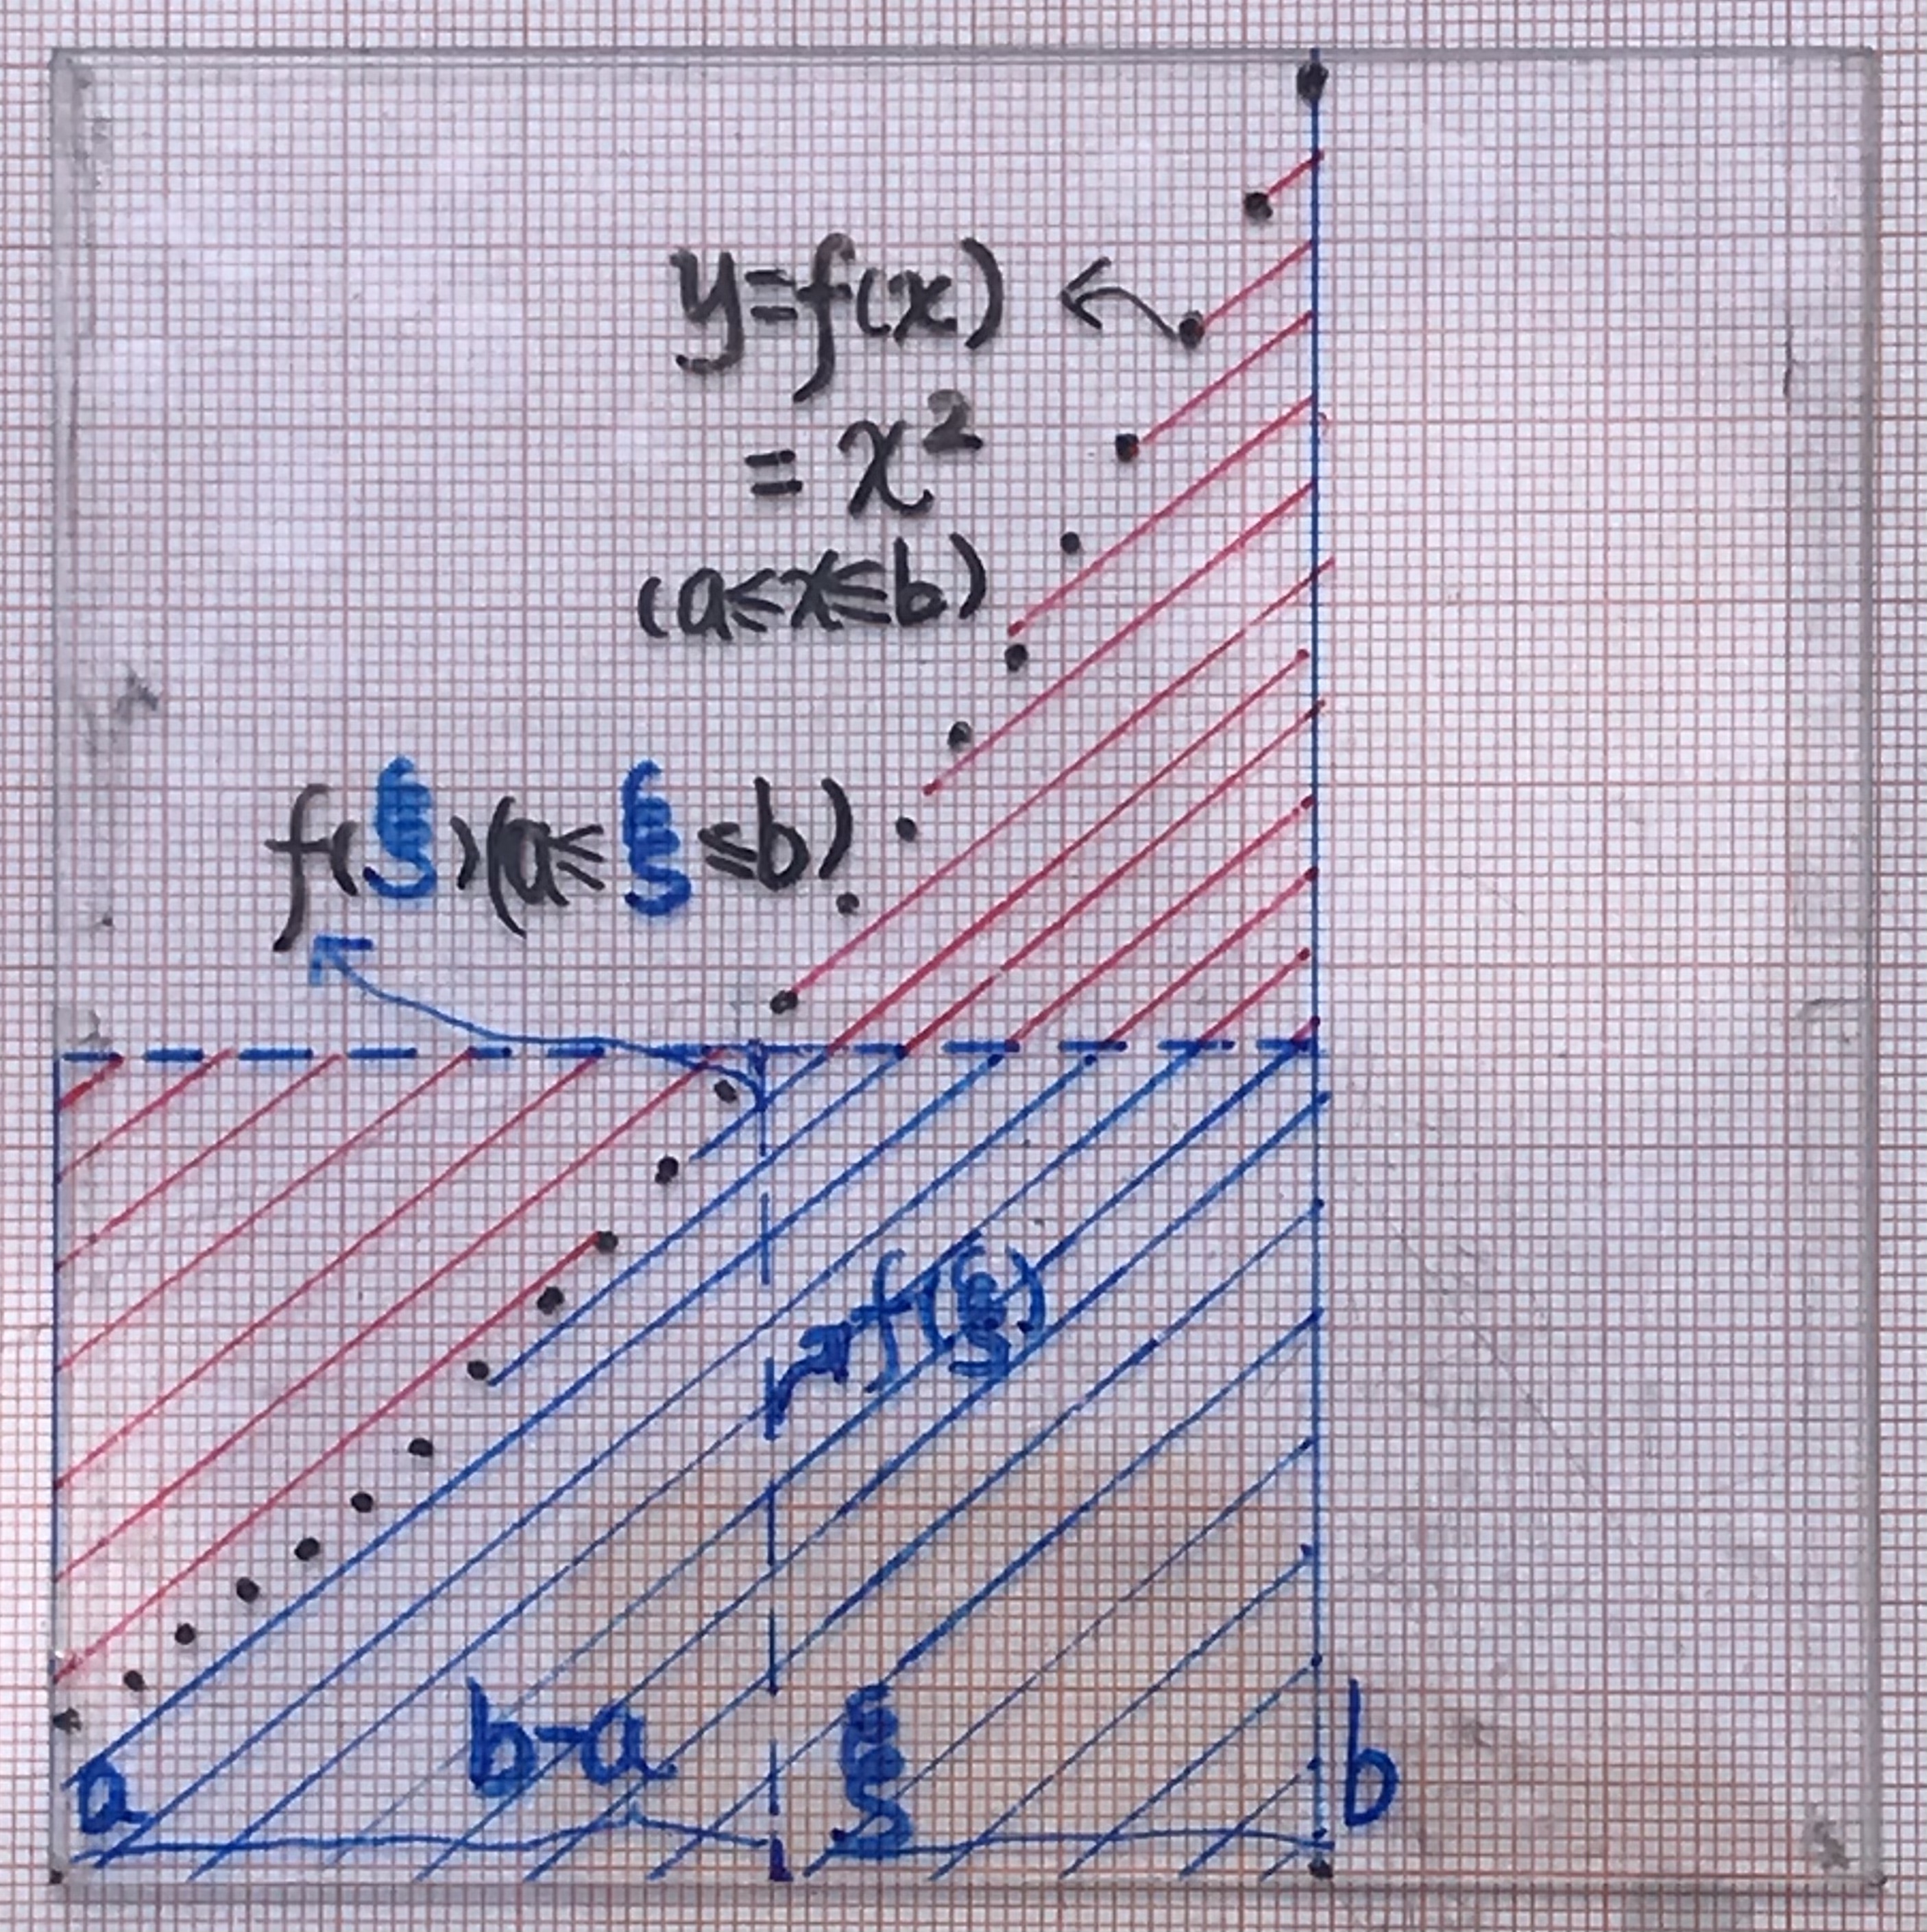 y=f(x)
= x²
(a≤x≤b)
f(ξ)(a≤ξ≤b)
f(ξ)
a
b-a
ξ
b